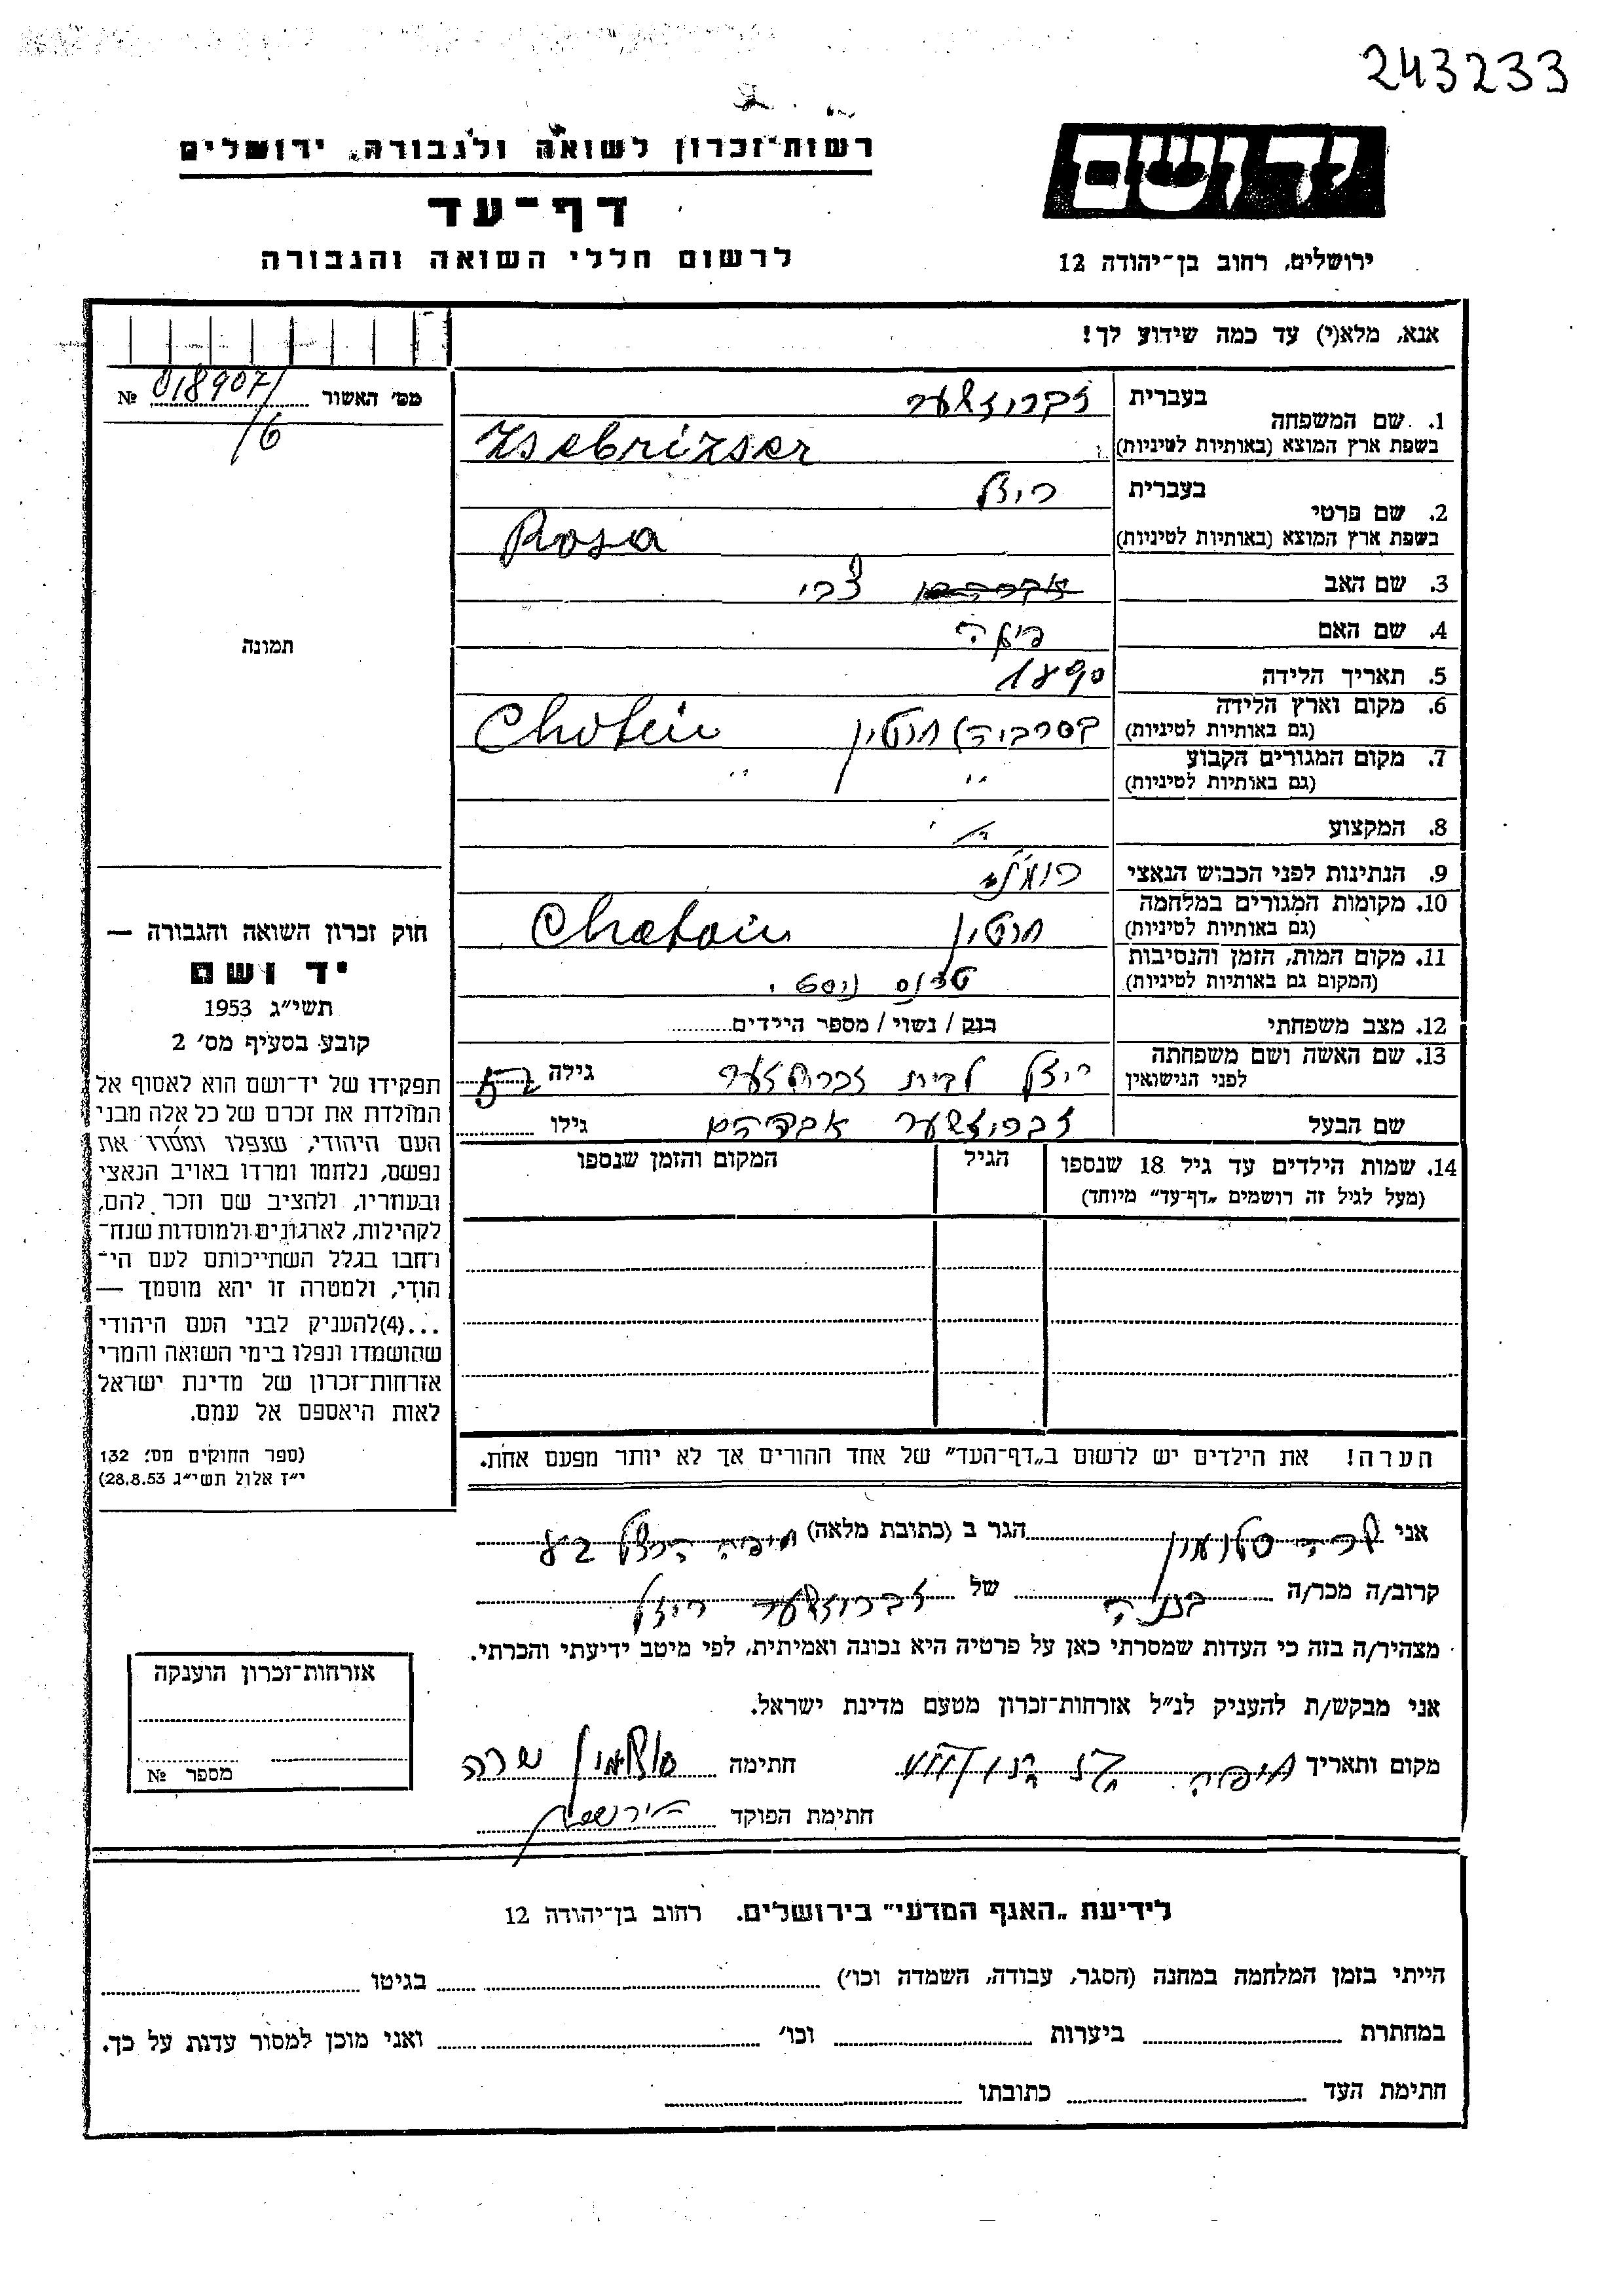 243233
רשות־זכרון לשואה ולגבורה, ירושלים
יד ושם
דף־עד
לרשום חללי השואה והגבורה
ירושלים, רחוב בן־יהודה 12
אנא, מלא(י) עד כמה שידוע לך!
מס׳ האשור № 0189071
/6
1. שם המשפחה
בעברית
בשפת ארץ המוצא (באותיות לטיניות) Zsebrizser
2. שם פרטי
בעברית ריזל
בשפת ארץ המוצא (באותיות לטיניות) Rosa
3. שם האב צבי
4. שם האם
5. תאריך הלידה 1890
6. מקום וארץ הלידה
(גם באותיות לטיניות) בסרביה חוטין Chotin
7. מקום המגורים הקבוע
(גם באותיות לטיניות) " "
8. המקצוע
9. הנתינות לפני הכבוש הנאצי
10. מקומות המגורים במלחמה
(גם באותיות לטיניות) חוטין
11. מקום המות, הזמן והנסיבות
(המקום גם באותיות לטיניות)
12. מצב משפחתי רנק / נשוי / מספר הילדים
13. שם האשה ושם משפחתה
לפני הנישואין ריזל לבית גילה
שם הבעל אברהם גילו
14. שמות הילדים עד גיל 18 שנספו
(מעל לגיל זה רושמים „דף־עד״ מיוחד)
הגיל
המקום והזמן שנספו
הערה! את הילדים יש לרשום ב„דף־העד״ של אחד ההורים אך לא יותר מפעם אחת.
תמונה
חוק זכרון השואה והגבורה —
יד ושם
תשי״ג 1953
קובע בסעיף מס׳ 2
תפקידו של יד־ושם הוא לאסוף אל
המולדת את זכרם של כל אלה מבני
העם היהודי, שנפלו ומסרו את
נפשם, נלחמו ומרדו באויב הנאצי
ובעוזריו, ולהציב שם וזכר להם,
לקהילות, לארגונים ולמוסדות שנח־
רחבו בגלל השתייכותם לעם הי־
הודי, ולמטרה זו יהא מוסמך —
...(4)להעניק לבני העם היהודי
שהושמדו ונפלו בימי השואה והמרי
אזרחות־זכרון של מדינת ישראל
לאות היאספם אל עמם.
(ספר החוקים מס׳ 132
י״ז אלול תשי״ג 28.8.53)
אני שרה סולומון הגר ב (כתובת מלאה) חיפה הרצל
קרוב/ה מכר/ה של ריזל
מצהיר/ה בזה כי העדות שמסרתי כאן על פרטיה היא נכונה ואמיתית, לפי מיטב ידיעתי והכרתי.
אני מבקש/ת להעניק לנ״ל אזרחות־זכרון מטעם מדינת ישראל.
מקום ותאריך חיפה חתימה סולומון שרה
חתימת הפוקד
אזרחות־זכרון הוענקה
מספר №
לידיעת „האגף המדעי״ בירושלים, רחוב בן־יהודה 12
הייתי בזמן המלחמה במחנה (הסגר, עבודה, השמדה וכו׳) בגיטו
במחתרת ביערות וכו׳ ואני מוכן למסור עדות על כך.
חתימת העד כתובתו